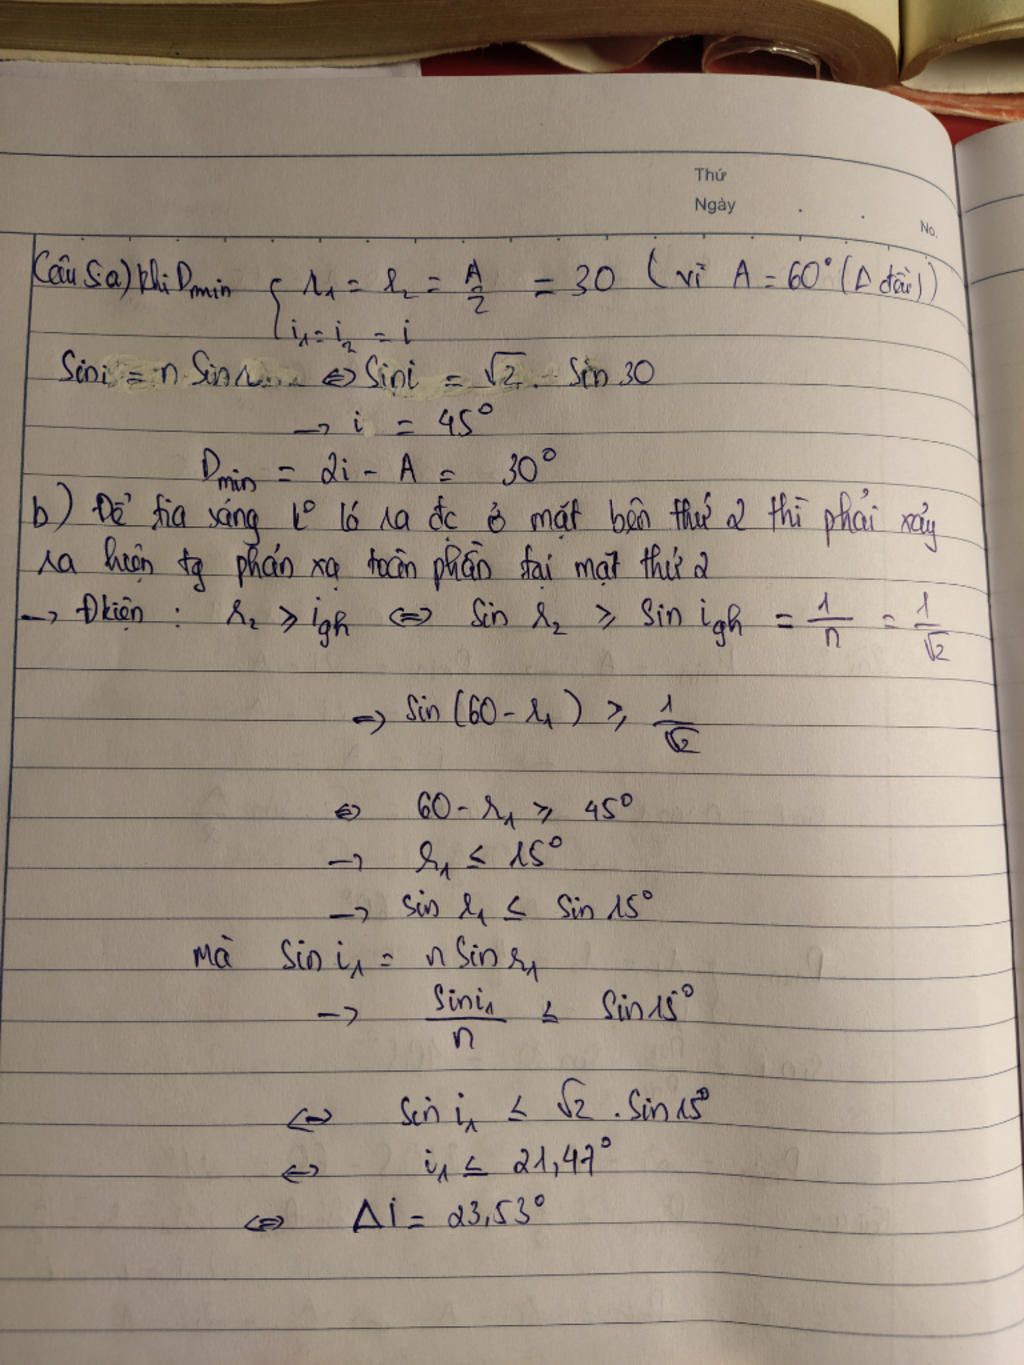 Thứ
Ngày . .
No.
Câu 5a) khi Dmin { r₁ = r₂ = A/2 = 30 ( vì A = 60° (Δ đều))
i₁ = i₂ = i
Sini = n Sinr... ⇔ Sini = √2 . Sin 30
→ i = 45°
Dmin = 2i - A = 30°
b) Để tia sáng k° ló ra đc ở mặt bên thứ 2 thì phải xảy
ra hiện tg phản xạ toàn phần tại mặt thứ 2
→ Đkiện : r₂ ≥ igh ⇔ Sin r₂ ≥ Sin igh = 1/n = 1/√2
⇒ Sin (60 - r₁) ≥ 1/√2
⇔ 60 - r₁ ≥ 45°
→ r₁ ≤ 15°
→ Sin r₁ ≤ Sin 15°
Mà Sin i₁ = n Sin r₁
→ Sini₁/n ≤ Sin15°
⇔ Sin i₁ ≤ √2 . Sin15°
⇔ i₁ ≤ 21,47°
⇔ Δi = 23,53°